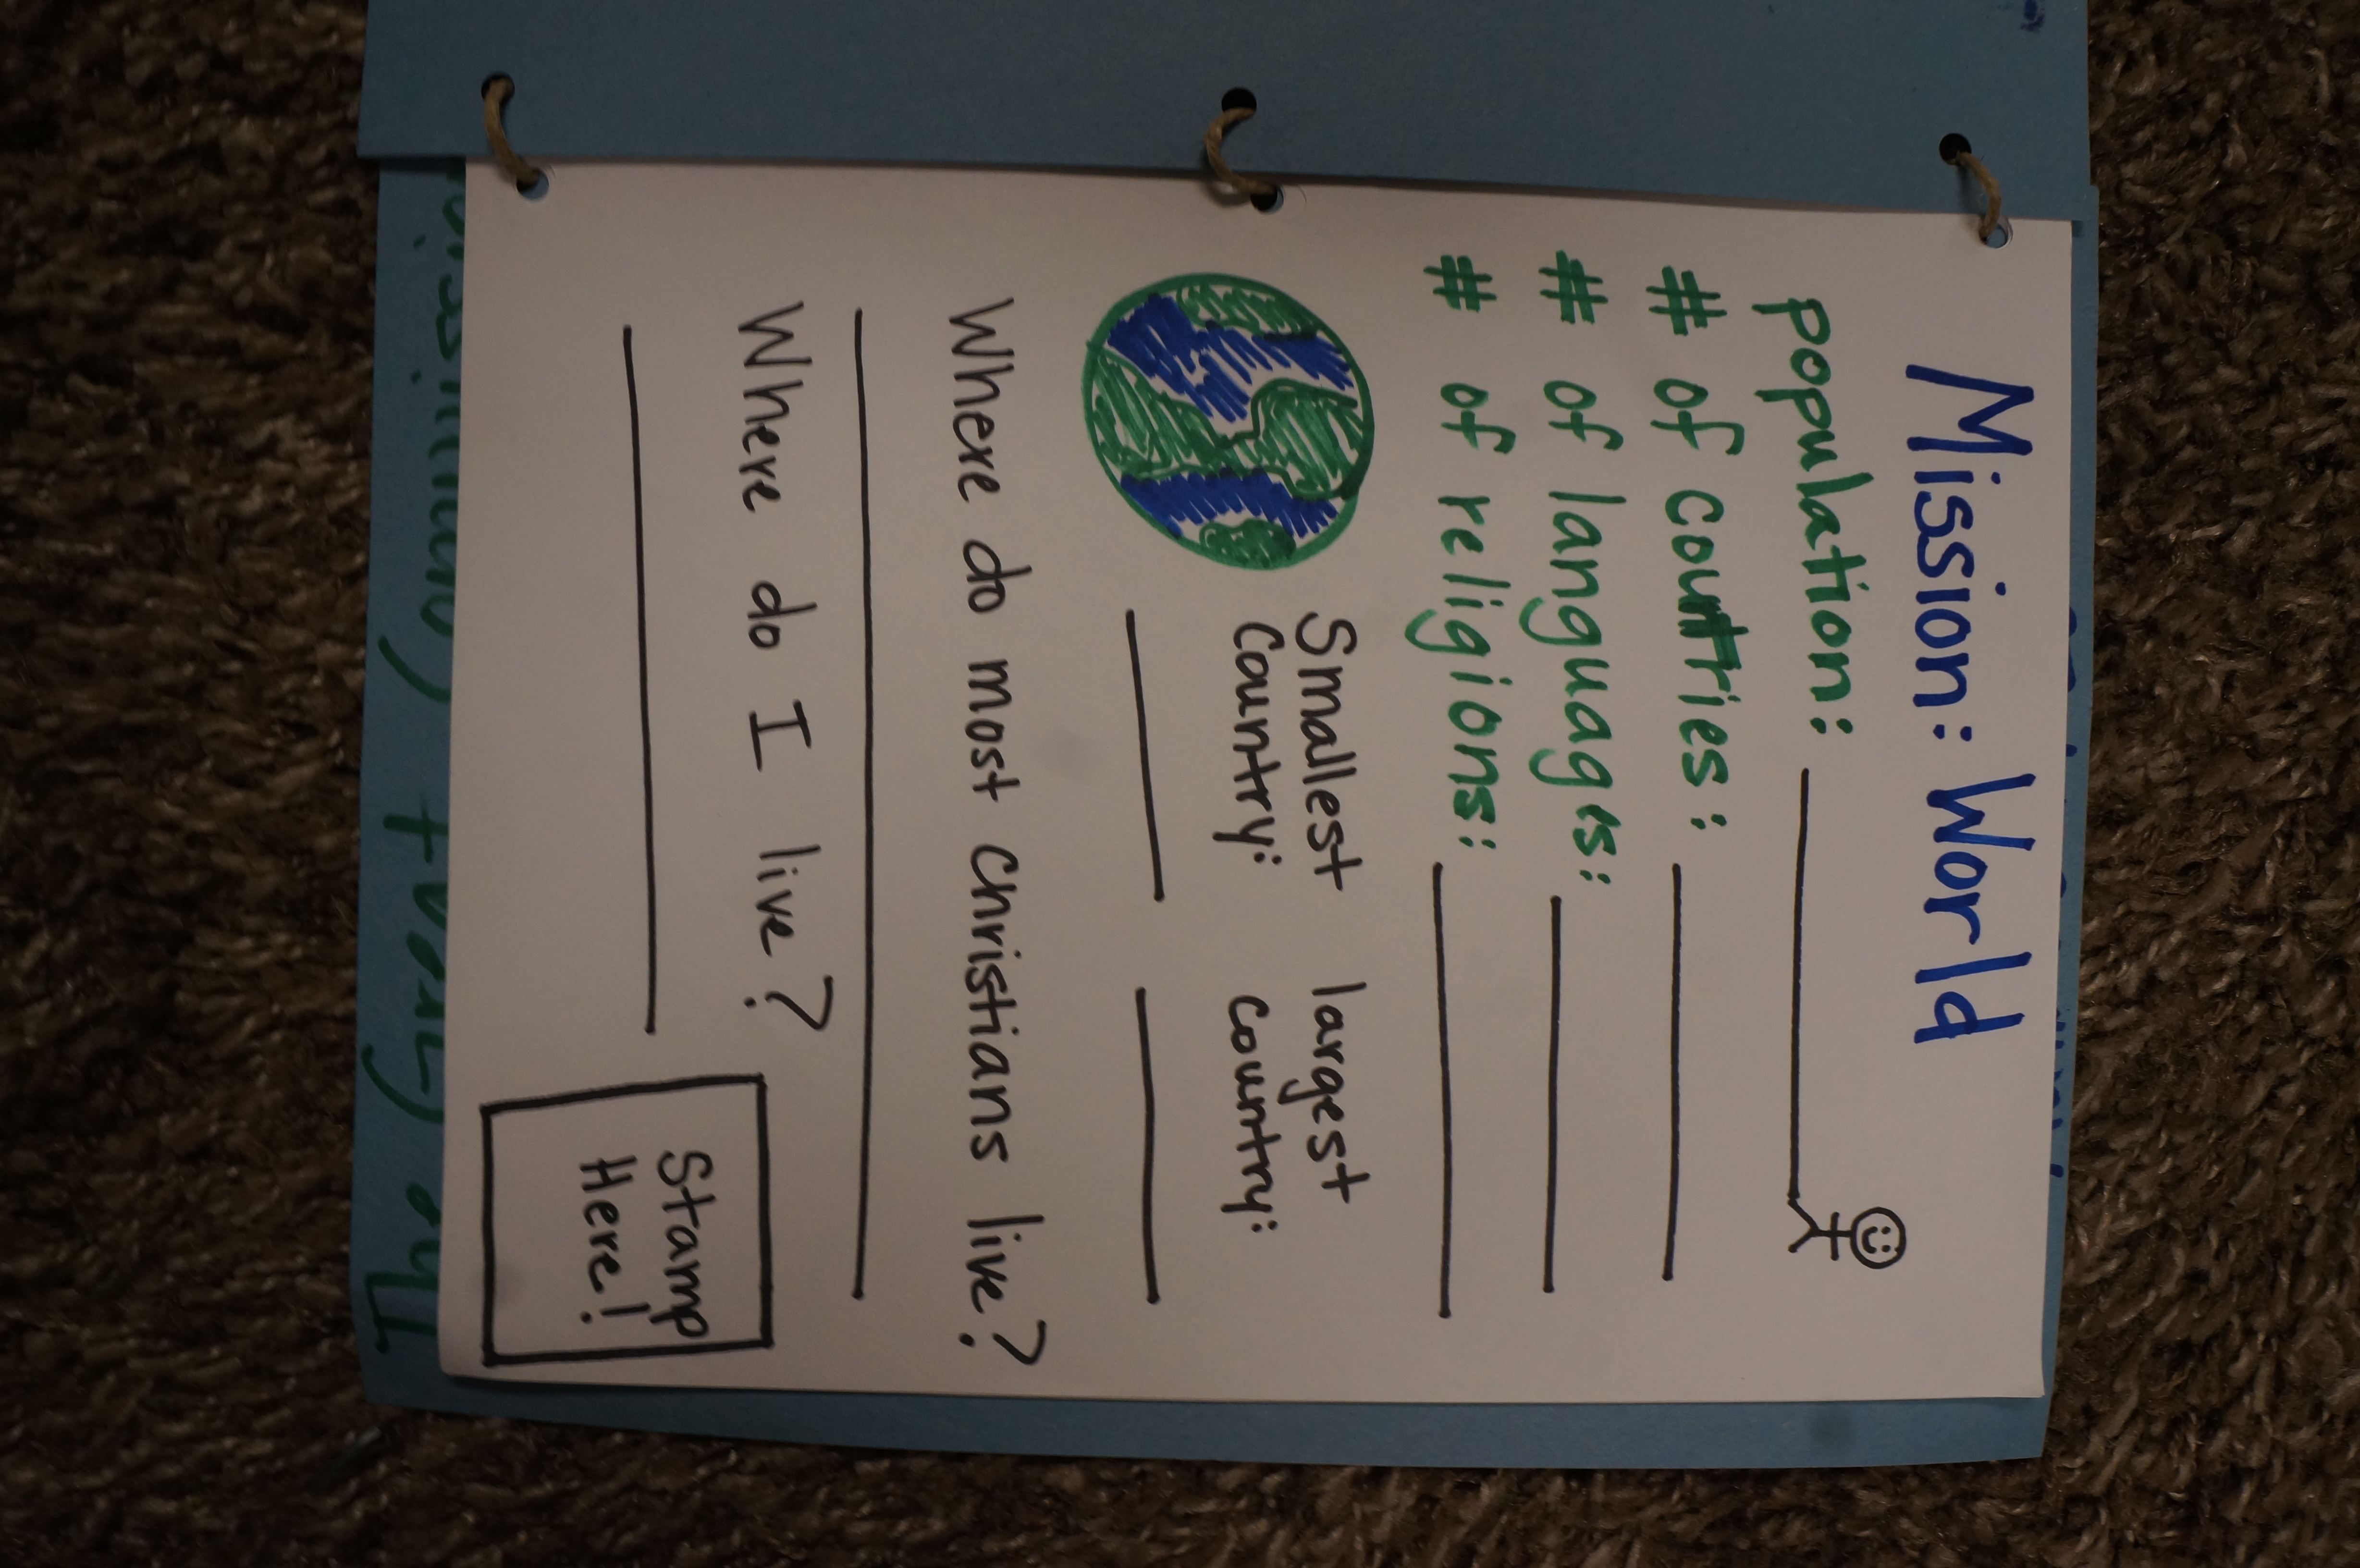 Mission: World
population:
# of countries:
# of languages:
# of religions:
Smallest Country:
largest Country:
Where do most Christians live?
Where do I live?
Stamp Here!